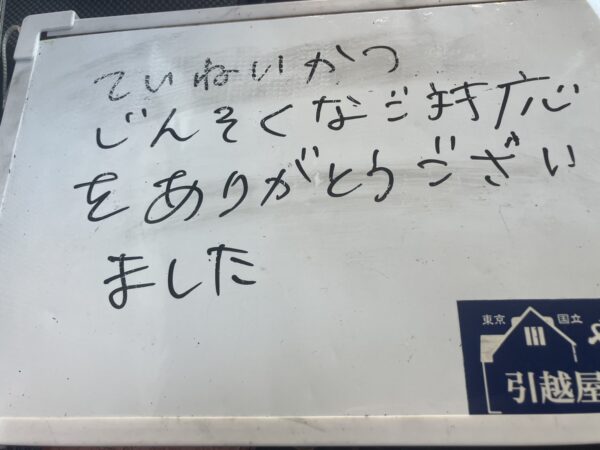 ていねいかつ
じんそくなご対応
をありがとうござい
ました
東京 国立
引越屋